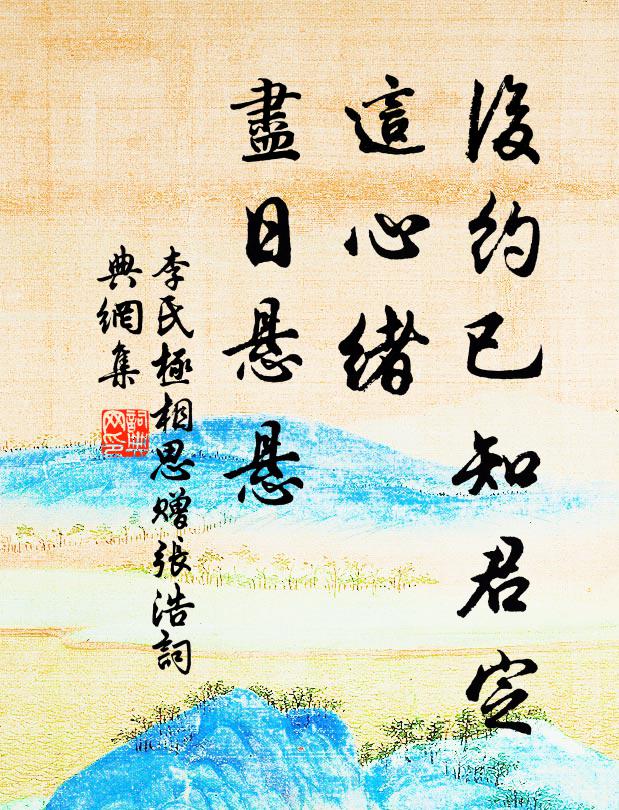 後約已知君定
這心緒
盡日懸懸
李氏極相思贈張浩詞
典網集
詞典
网印